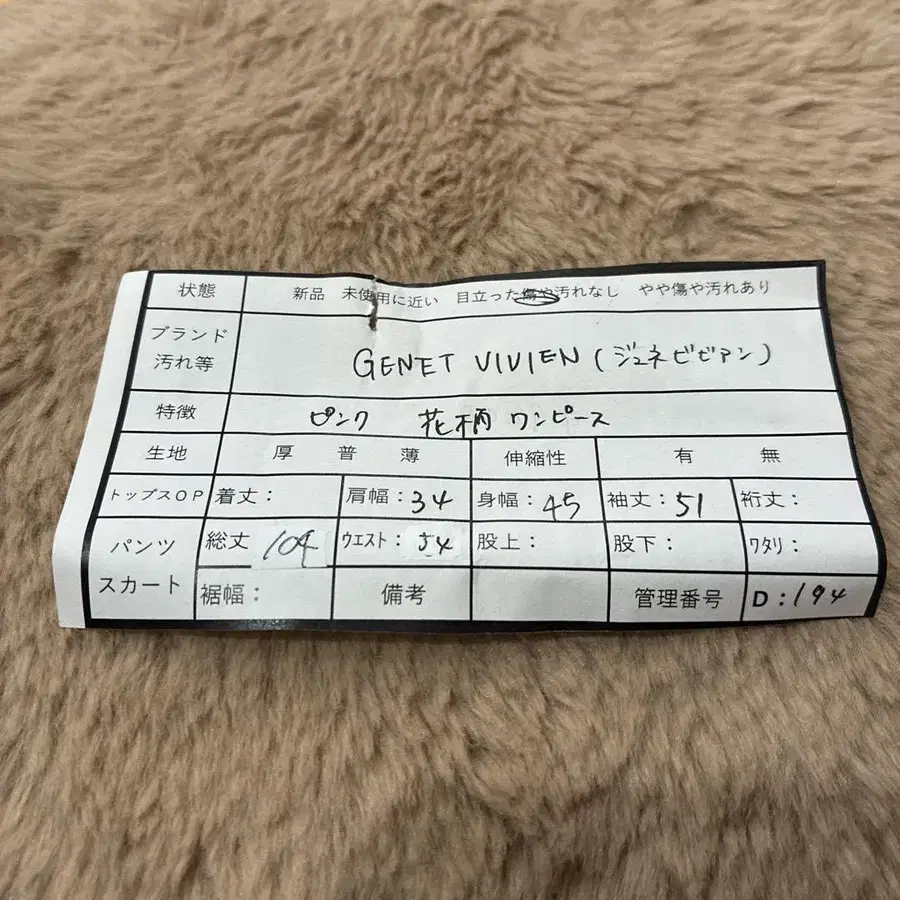 状態 新品 未使用に近い 目立った傷や汚れなし やや傷や汚れあり
ブランド
汚れ等
GENET VIVIEN (ジュネビビアン)
特徴 ピンク 花柄 ワンピース
生地 厚 普 薄 伸縮性 有 無
トップスOP 着丈: 肩幅:34 身幅:45 袖丈:51 裄丈:
パンツ
スカート
総丈 109 ウエスト: 34 股上: 股下: ワタリ:
裾幅: 備考 管理番号 D:194